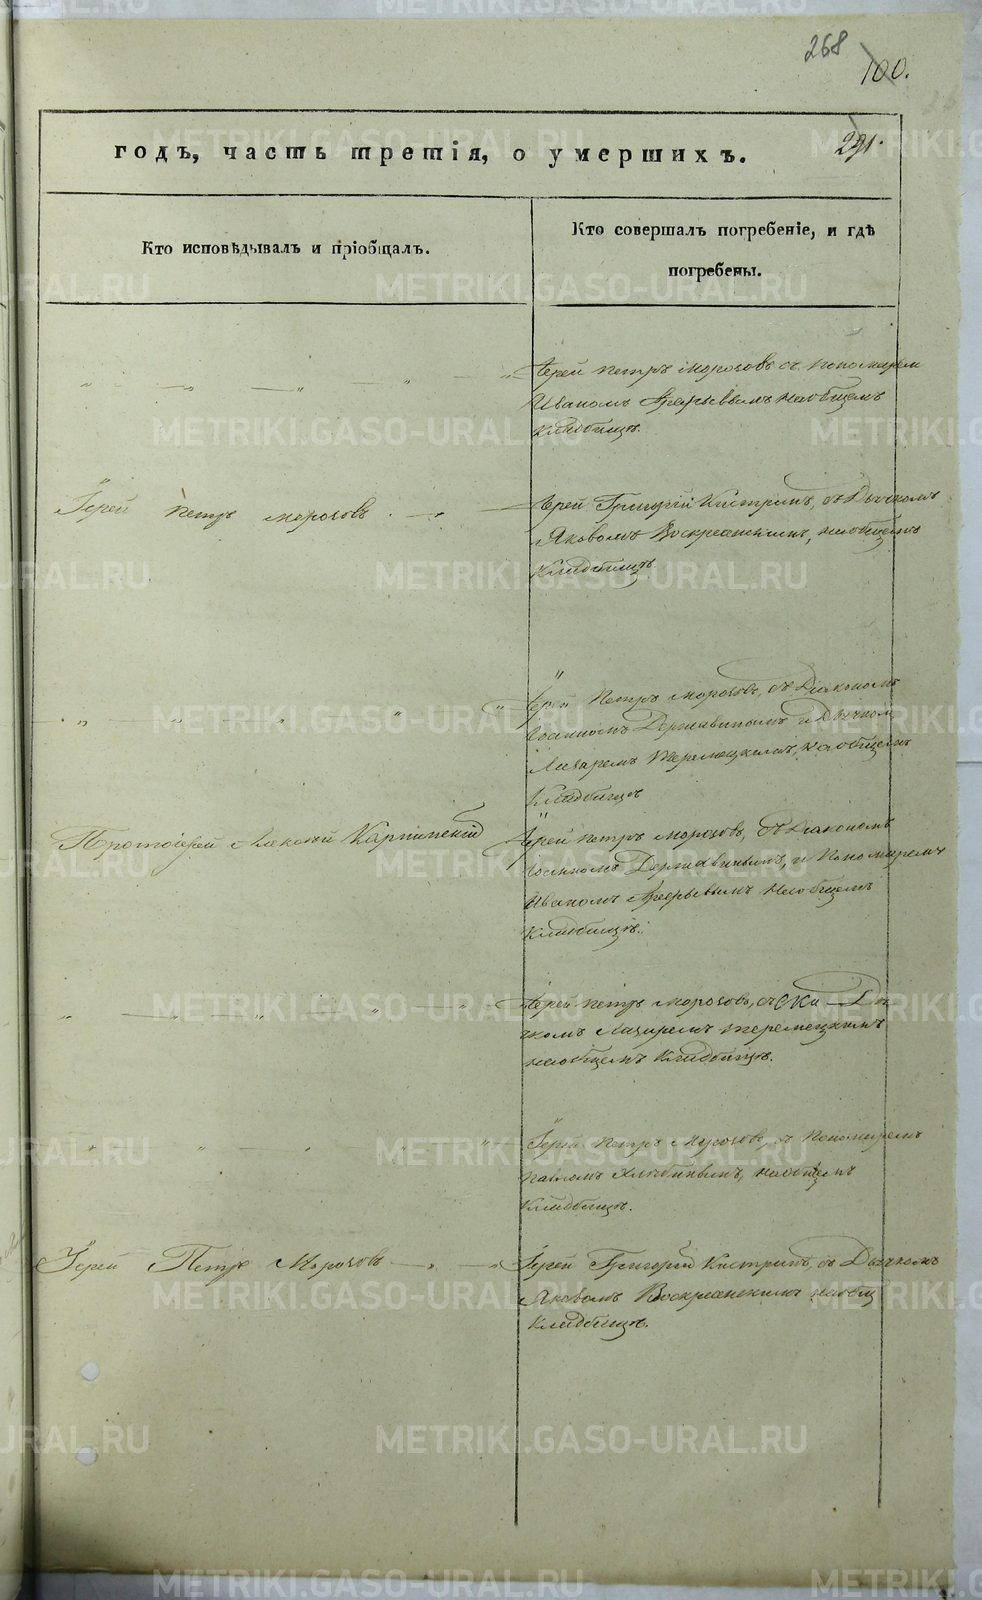 268
100.
291.
годъ, часть третія, о умершихъ.
Кто исповѣдывалъ и пріобщалъ.
Кто совершалъ погребеніе, и гдѣ
погребены.
Іерей Петръ Морозовъ съ Пономаремъ
Иваномъ на общемъ
Кладбищѣ.
Іерей Петръ Морозовъ
Іерей Григорій Кистринъ, съ Дьячкомъ
Яковомъ Воскресенскимъ, на общемъ
Кладбищѣ
Іерей Петръ Морозовъ, съ Діакономъ
Іоанномъ Державинымъ и Дьячкомъ
Лазаремъ Теремецкимъ, на общемъ
Кладбищѣ
Протоіерей Алексій Карпинскій
Іерей Петръ Морозовъ, съ Діакономъ
Іоанномъ Державинымъ, и Пономаремъ
Иваномъ на общемъ
Кладбищѣ.
Іерей Петръ Морозовъ, съ Дья-
чкомъ Лазаремъ Теремецкимъ
на общемъ Кладбищѣ.
Іерей Петръ Морозовъ, съ Пономаремъ
Павломъ на общемъ
Кладбищѣ.
Іерей Петръ Морозовъ
Іерей Григорій Кистринъ, съ Дьячкомъ
Яковомъ Воскресенскимъ на общ
Кладбищѣ.
METRIKI.GASO-URAL.RU